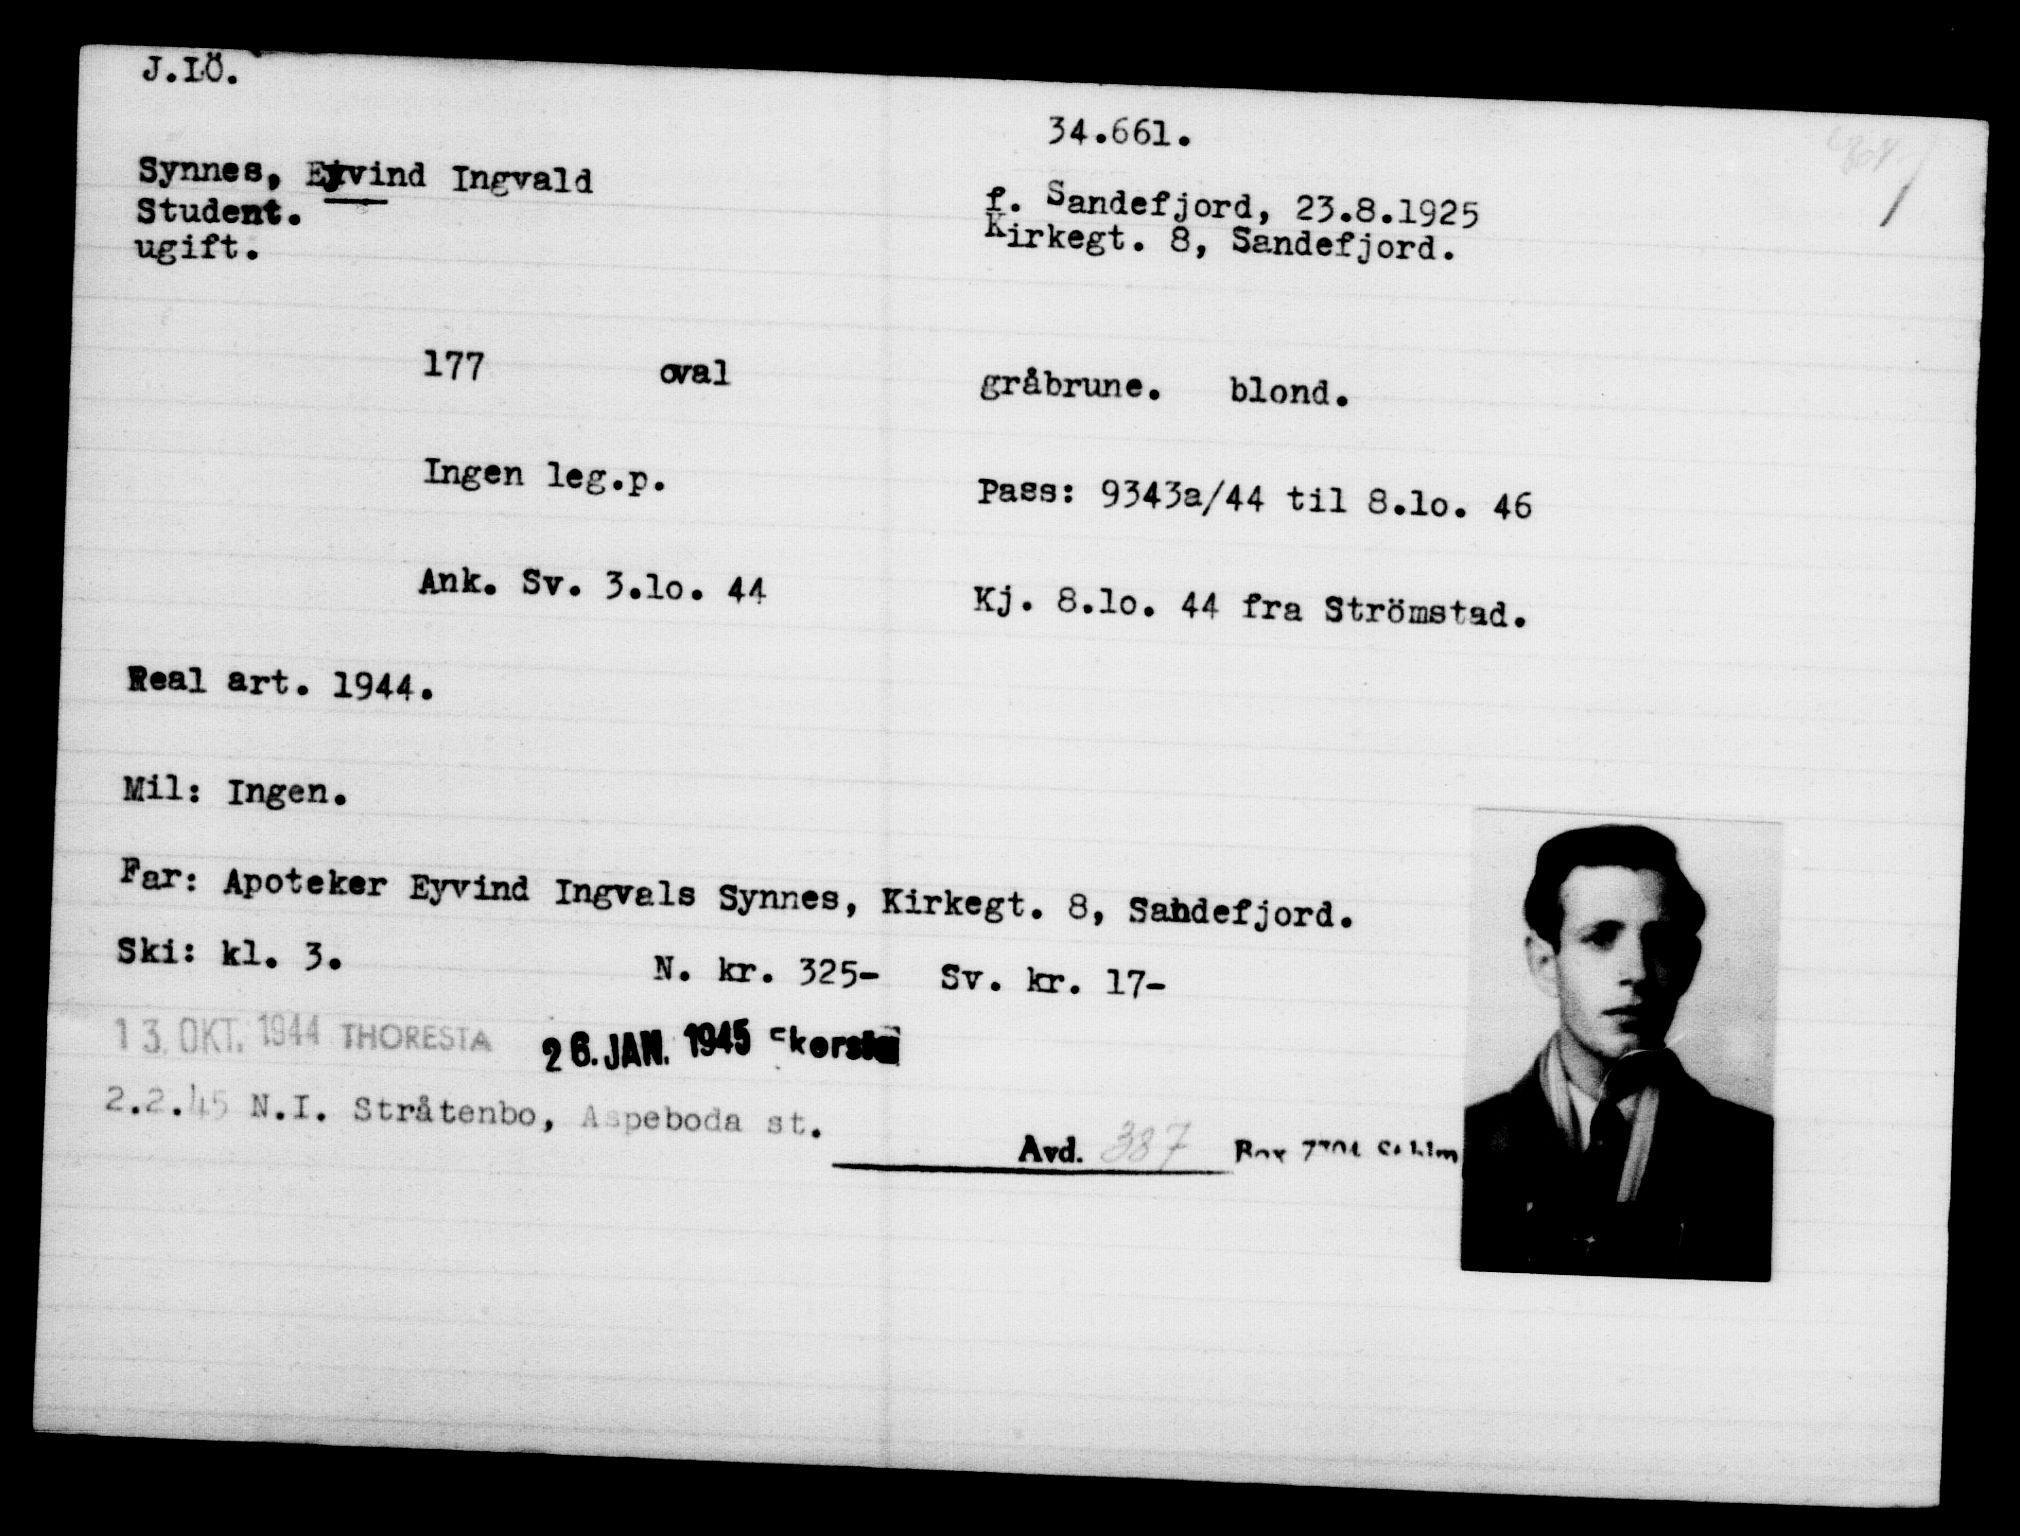 J.LÖ.
34.661.
Synnes, Eyvind Ingvald
Student.
ugift.
f. Sandefjord, 23.8.1925
Kirkegt. 8, Sandefjord.
177 oval gråbrune. blond.
Ingen leg.p. Pass: 9343a/44 til 8.lo. 46
Ank. Sv. 3.lo. 44 Kj. 8.lo. 44 fra Strömstad.
Real art. 1944.
Mil: Ingen.
Far: Apoteker Eyvind Ingvals Synnes, Kirkegt. 8, Sandefjord.
Ski: kl. 3. N. kr. 325- Sv. kr. 17-
13. OKT. 1944 THORESTA 26. JAN. 1945
2.2.45 N.I. Stråtenbo, Aspeboda st.
Avd. 387 Box